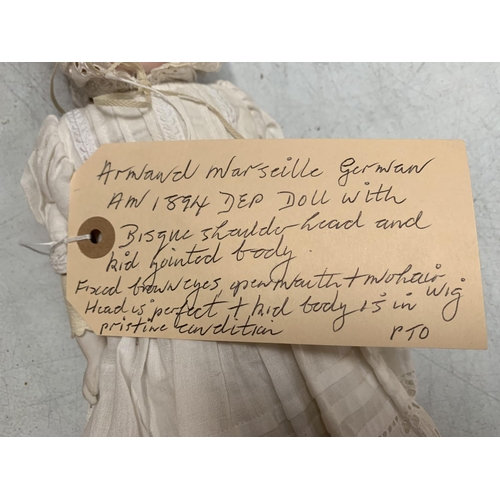 Armand Marseille German
AM 1894 DEP Doll with
Bisque shoulder head and
kid jointed body.
Fixed brown eyes open mouth + mohair wig
Head is perfect + kid body is in
pristine condition
PTO